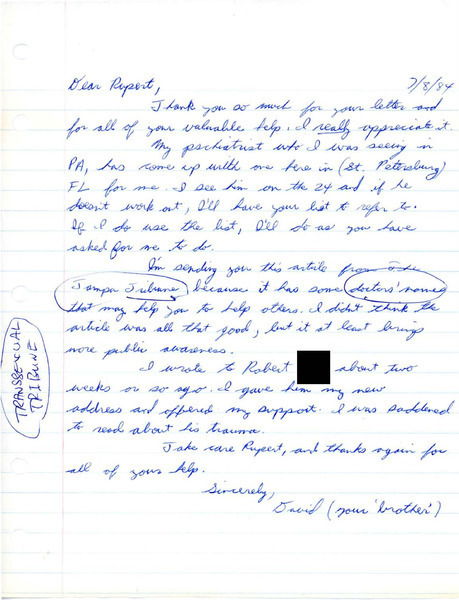 Dear Rupert, 7/8/84
Thank you so much for your letter and
for all of your valuable help. I really appreciate it.
My pschiatrist who I was seeing in
PA, has come up with one here in (St. Petersburg)
FL for me. I see him on the 24 and if he
doesn't work out, I'll have your list to refer to.
If I do use the list, I'll do as you have
asked for me to do.
I'm sending you this article from the
Tampa Tribune because it has some doctors' names
that may help you to help others. I didn't think the
article was all that good, but it at least brings
more public awareness.
I wrote to Robert about two
weeks or so ago. I gave him my new
address and offered my support. I was saddened
to read about his trauma.
Take care Rupert, and thanks again for
all of yours help.
Sincerely,
David (your 'brother')
TRANSSEXUAL
TRIBUNE